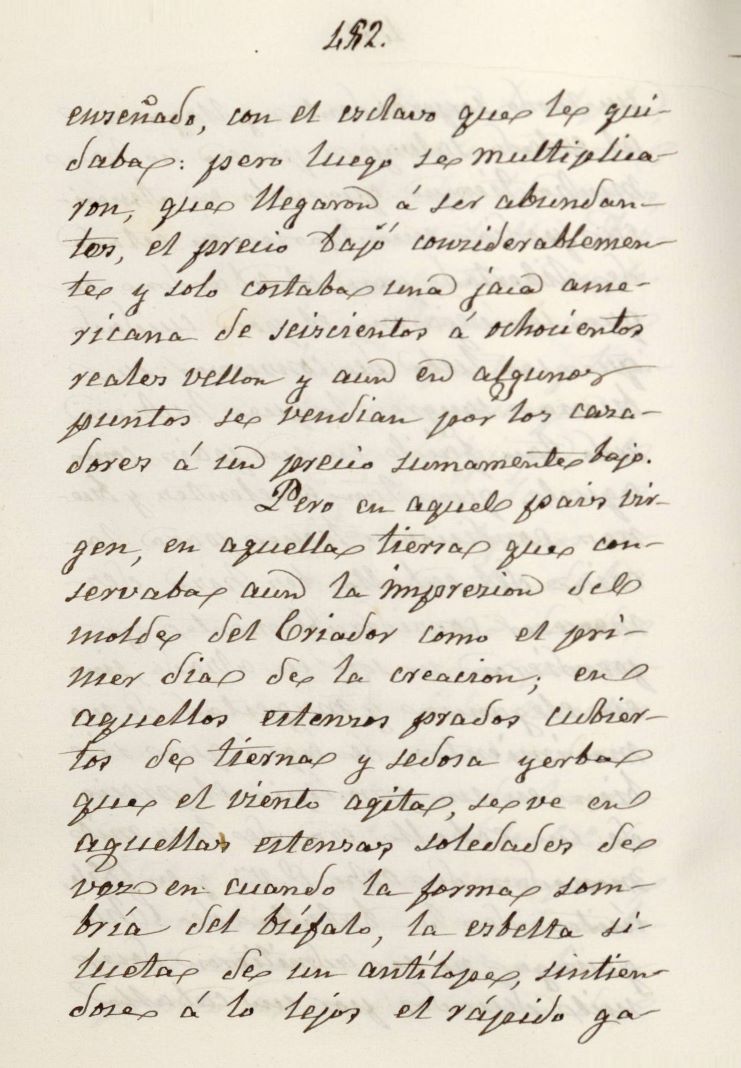 482.
enseñado, con el esclavo que le gui-
daba: pero luego se multiplica-
ron, que llegaron á ser abundan-
tes, el precio bajó considerablemen-
te y solo costaba una jaca ame-
ricana de seiscientos á ochocientos
reales vellon y aun en algunos
puntos se vendian por los caza-
dores á un precio sumamente bajo.
Pero en aquel pais vir-
gen, en aquella tierra que con-
servaba aun la impresion del
molde del Criador como el pri-
mer dia de la creacion; en
aquellos estensos prados cubier-
tos de tierna y sedosa yerba
que el viento agita, se ve en
aquellas estensas soledades de
vez en cuando la forma som-
bría del búfalo, la esbelta si-
lueta de un antílope, sintien-
dose á lo lejos el rápido ga-